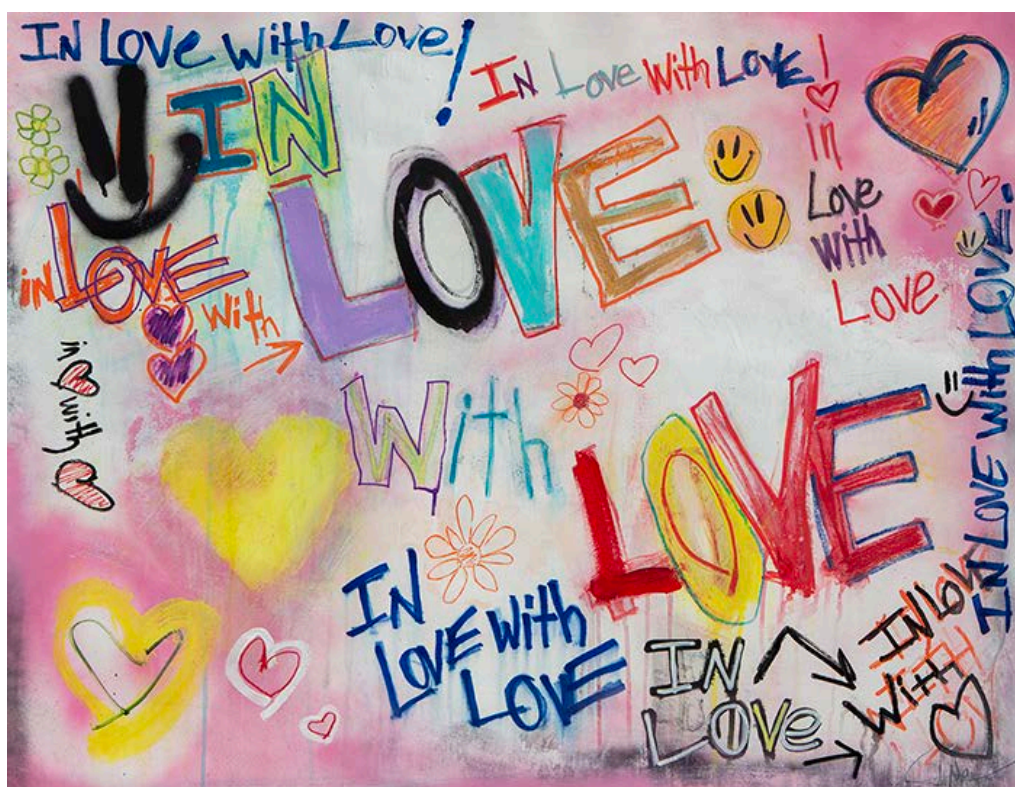 IN Love with Love!
IN Love With LOVE!
IN
LOVE
With
LOVE
in
Love
with
Love
in LOVE
With
in
with
IN
LOVE with
LOVE
IN LOVE with LOVE.
IN
LOVe
IN LOV
WITH